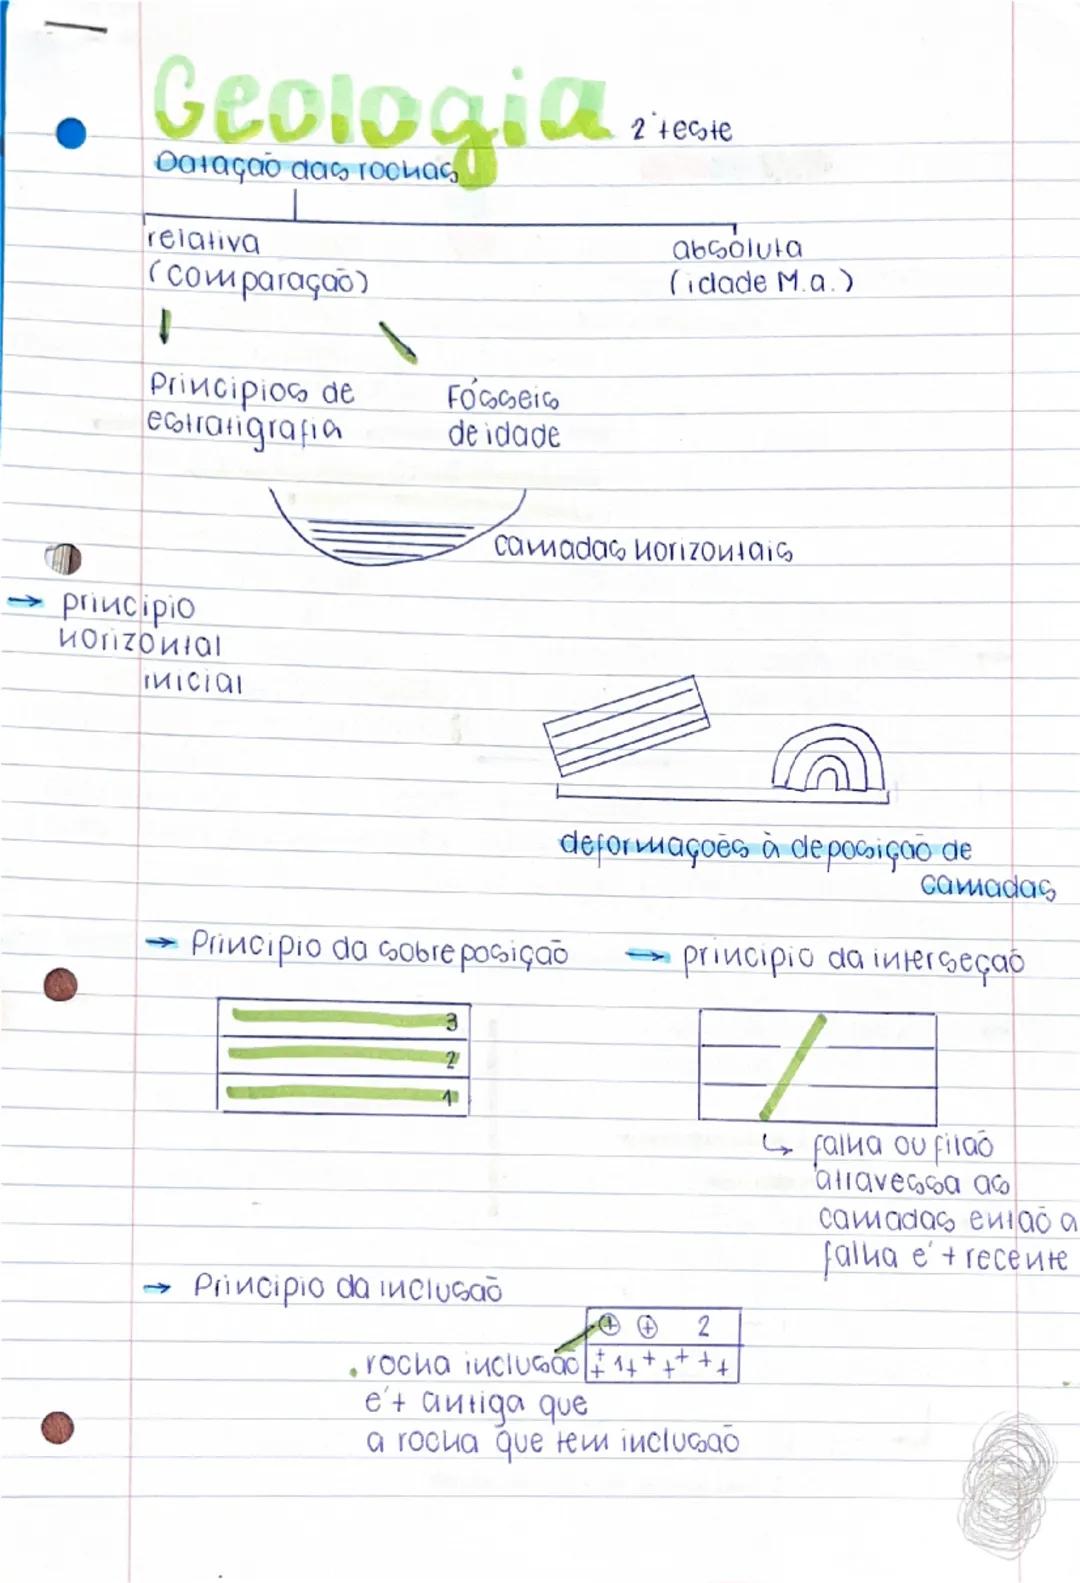 Geologia 2° teste
Datação das rochas
relativa
(comparação)
absoluta
(idade M.a.)
Principios de
estratigrafia
Fósseis
de idade
camadas horizontais
→ principio
horizontal
inicial
deformações à deposição de
camadas
→ Principio da sobreposição
→ principio da interseção
3
2
1
↳ falha ou filão
atravessa as
camadas então a
falha é + recente
→ Principio da inclusão
+ + 2
+ + 1 + + + + + +
. rocha inclusão
é + antiga que
a rocha que tem inclusão